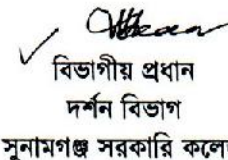 বিভাগীয় প্রধান
দর্শন বিভাগ
সুনামগঞ্জ সরকারি কলেজ